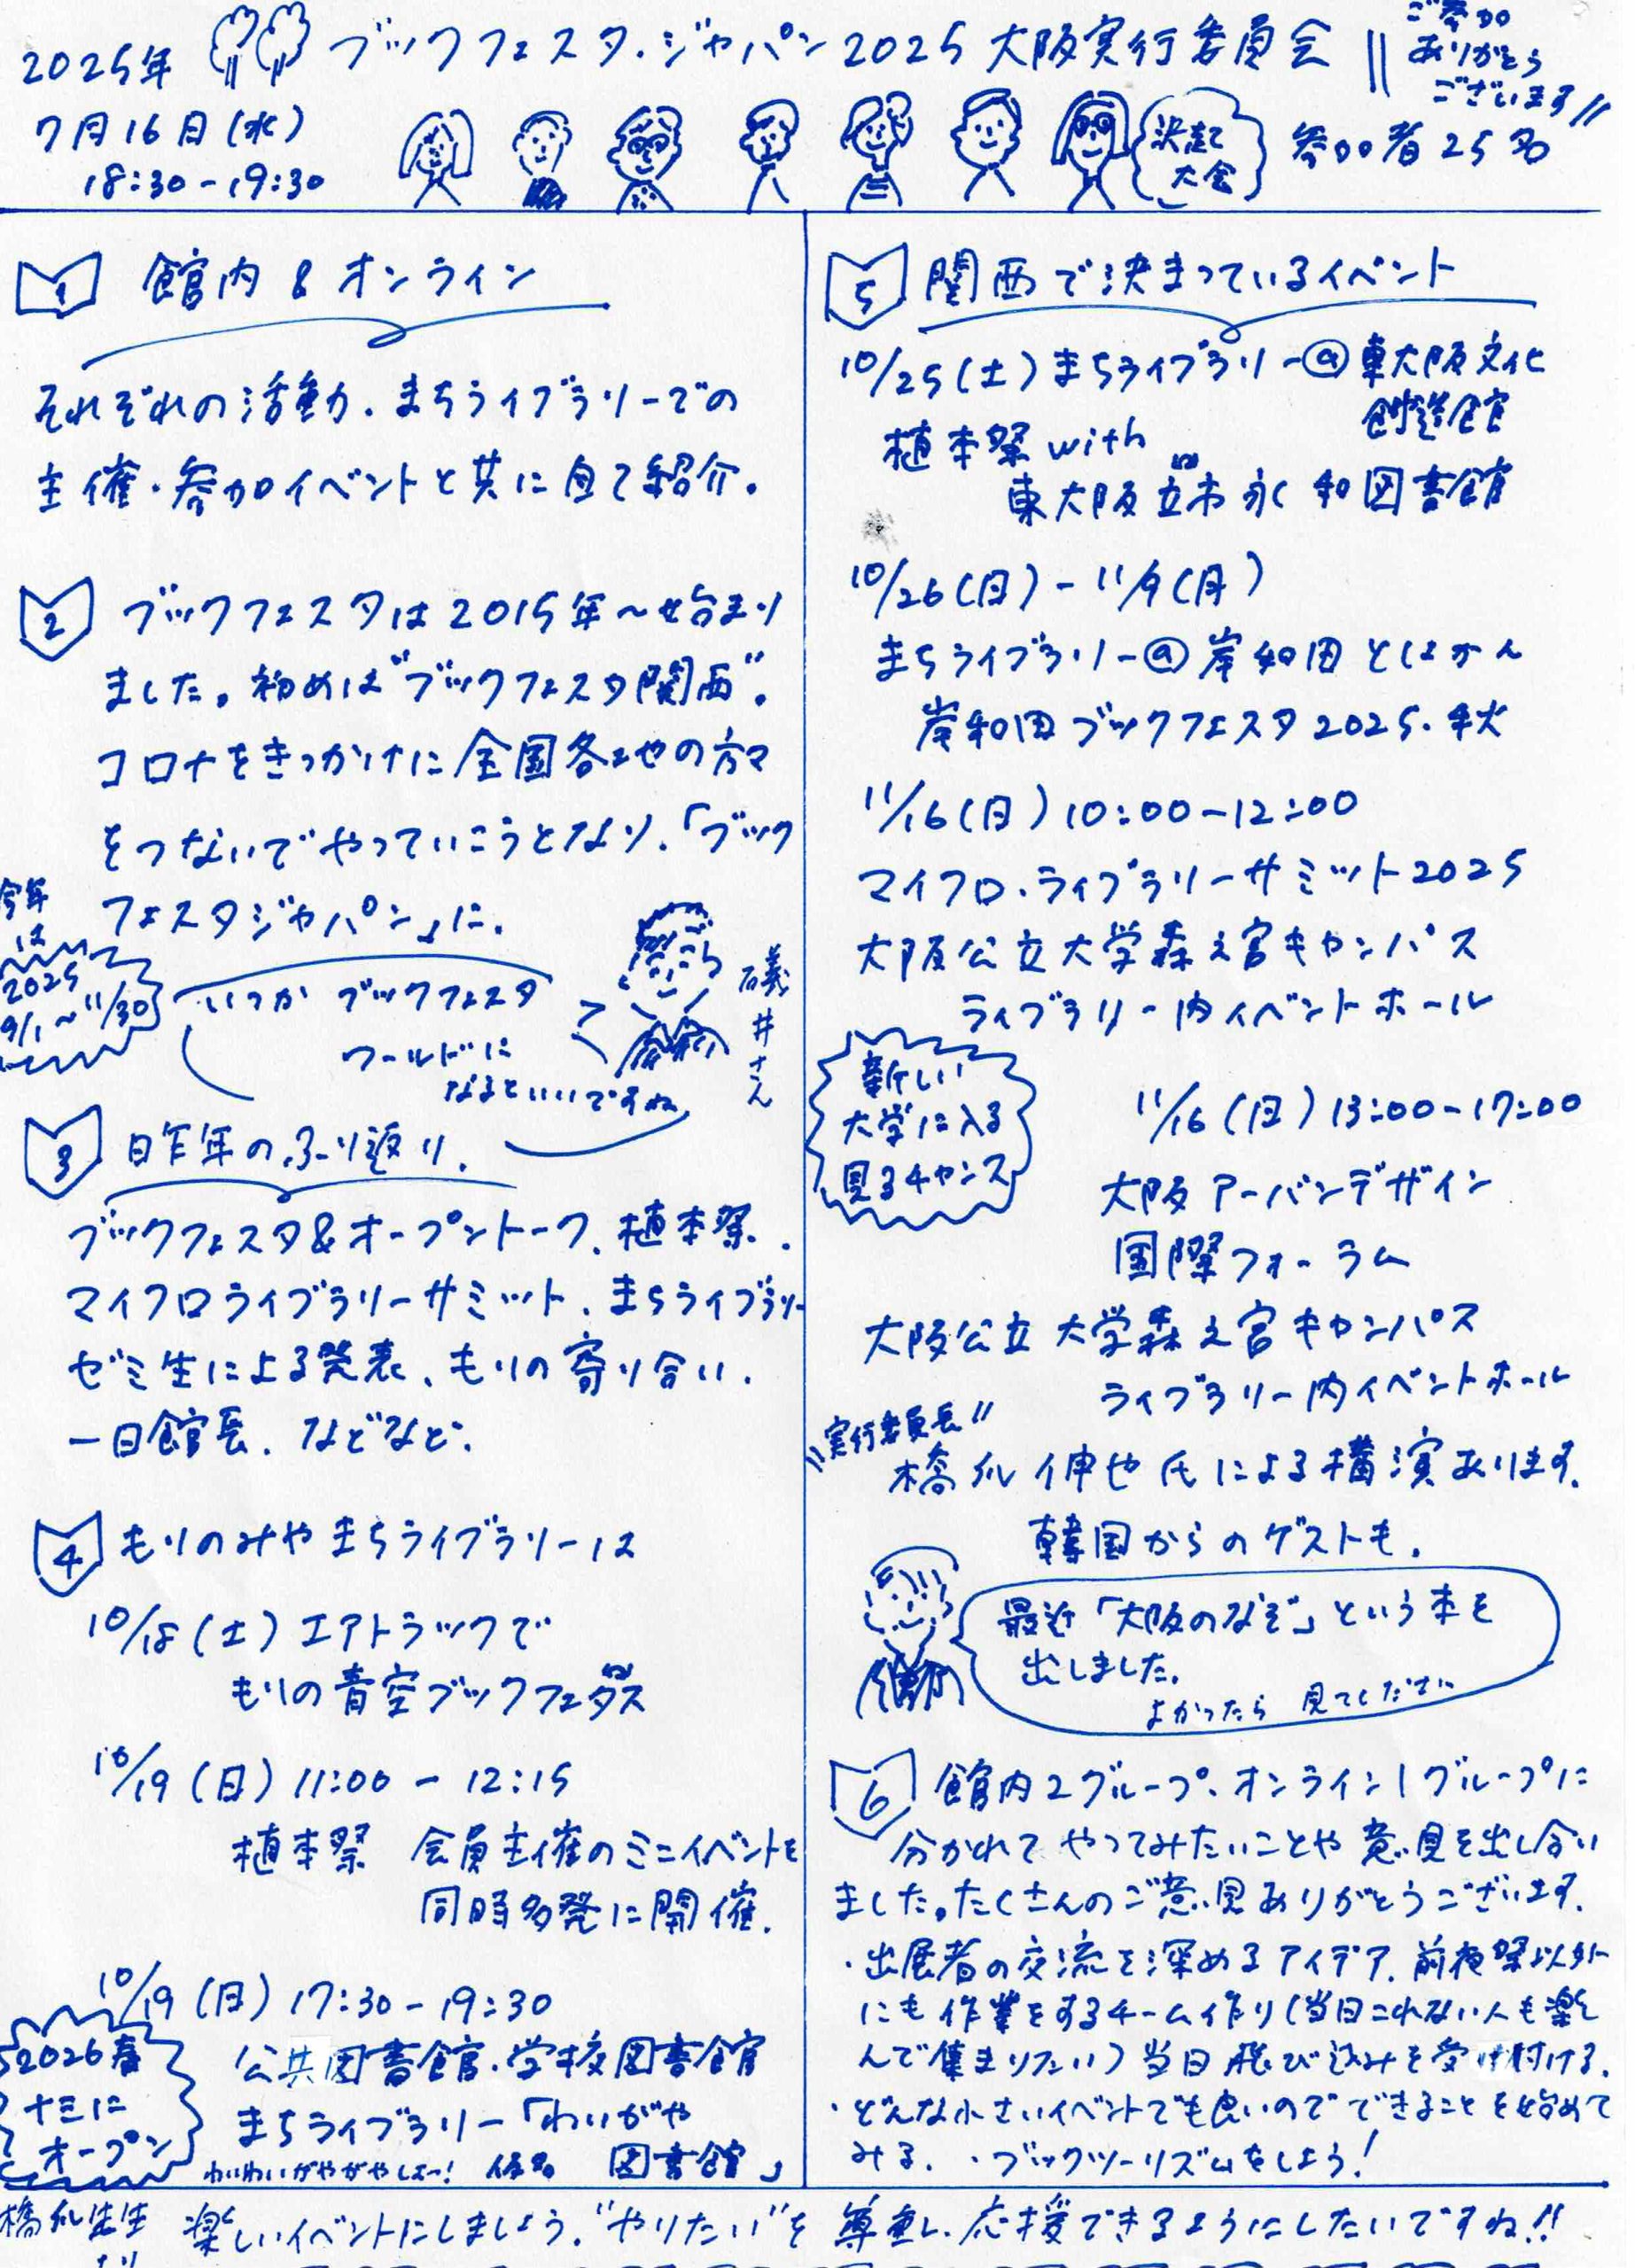 2025年 ブックフェスタ・ジャパン2025 大阪実行委員会
ご参加
ありがとう
ございます
7月16日(水)
18:30-19:30
決起
大会
参加者25名
1 館内&オンライン
それぞれの活動、まちライブラリーでの
主催・参加イベントと共に自己紹介。
2 ブックフェスタは2015年〜始まり
ました。初めは“ブックフェスタ関西”。
コロナをきっかけに全国各地の方々
をつないでやっていこうとなり、「ブック
フェスタジャパン」に。
今年
は
2025
9/1〜11/30
いつか ブックフェスタ
ワールドに
なるといいですね
礒井さん
3 昨年のふり返り、
ブックフェスタ&オープントーク、植本祭、
マイクロライブラリーサミット、まちライブラリー
ゼミ生による発表、もりの寄り合い、
一日館長、などなど。
4 もりのみやまちライブラリーは
10/18(土)エアトラックで
もりの青空ブックフェスタ
10/19(日)11:00-12:15
植本祭 会員主催のミニイベントを
同時多発に開催。
10/19(日)17:30-19:30
公共図書館・学校図書館
まちライブラリー「わいがや
図書館」
わいわいがやがやしよ〜! 仮名
2026春
十三に
オープン
5 関西で決まっているイベント
10/25(土)まちライブラリー@東大阪文化
創造館
植本祭with
東大阪市立永和図書館
10/26(日)-11/9(月)
まちライブラリー@岸和田としょかん
岸和田ブックフェスタ2025・秋
11/16(日)10:00-12:00
マイクロ・ライブラリーサミット2025
大阪公立大学森之宮キャンパス
ライブラリー内イベントホール
新しい
大学に入る
見るチャンス
11/16(日)13:00-17:00
大阪アーバンデザイン
国際フォーラム
大阪公立大学森之宮キャンパス
ライブラリー内イベントホール
実行委員長
橋爪伸也氏による講演あります。
韓国からのゲストも。
最近「大阪のなぞ」という本を
出しました。
よかったら 見てください
6 館内2グループ、オンライン1グループに
分かれて やってみたいことや意見を出し合い
ました。たくさんのご意見ありがとうございます。
・出展者の交流を深めるアイデア、前夜祭以外
にも作業をするチーム作り(当日これない人も楽し
んで集まりたい)当日飛び込みを受け付ける。
・どんな小さいイベントでも良いのでできることを始めて
みる。・ブックツーリズムをしよう!
橋爪先生
より
楽しいイベントにしましょう。“やりたい”を尊重し、応援できるようにしたいですね!!